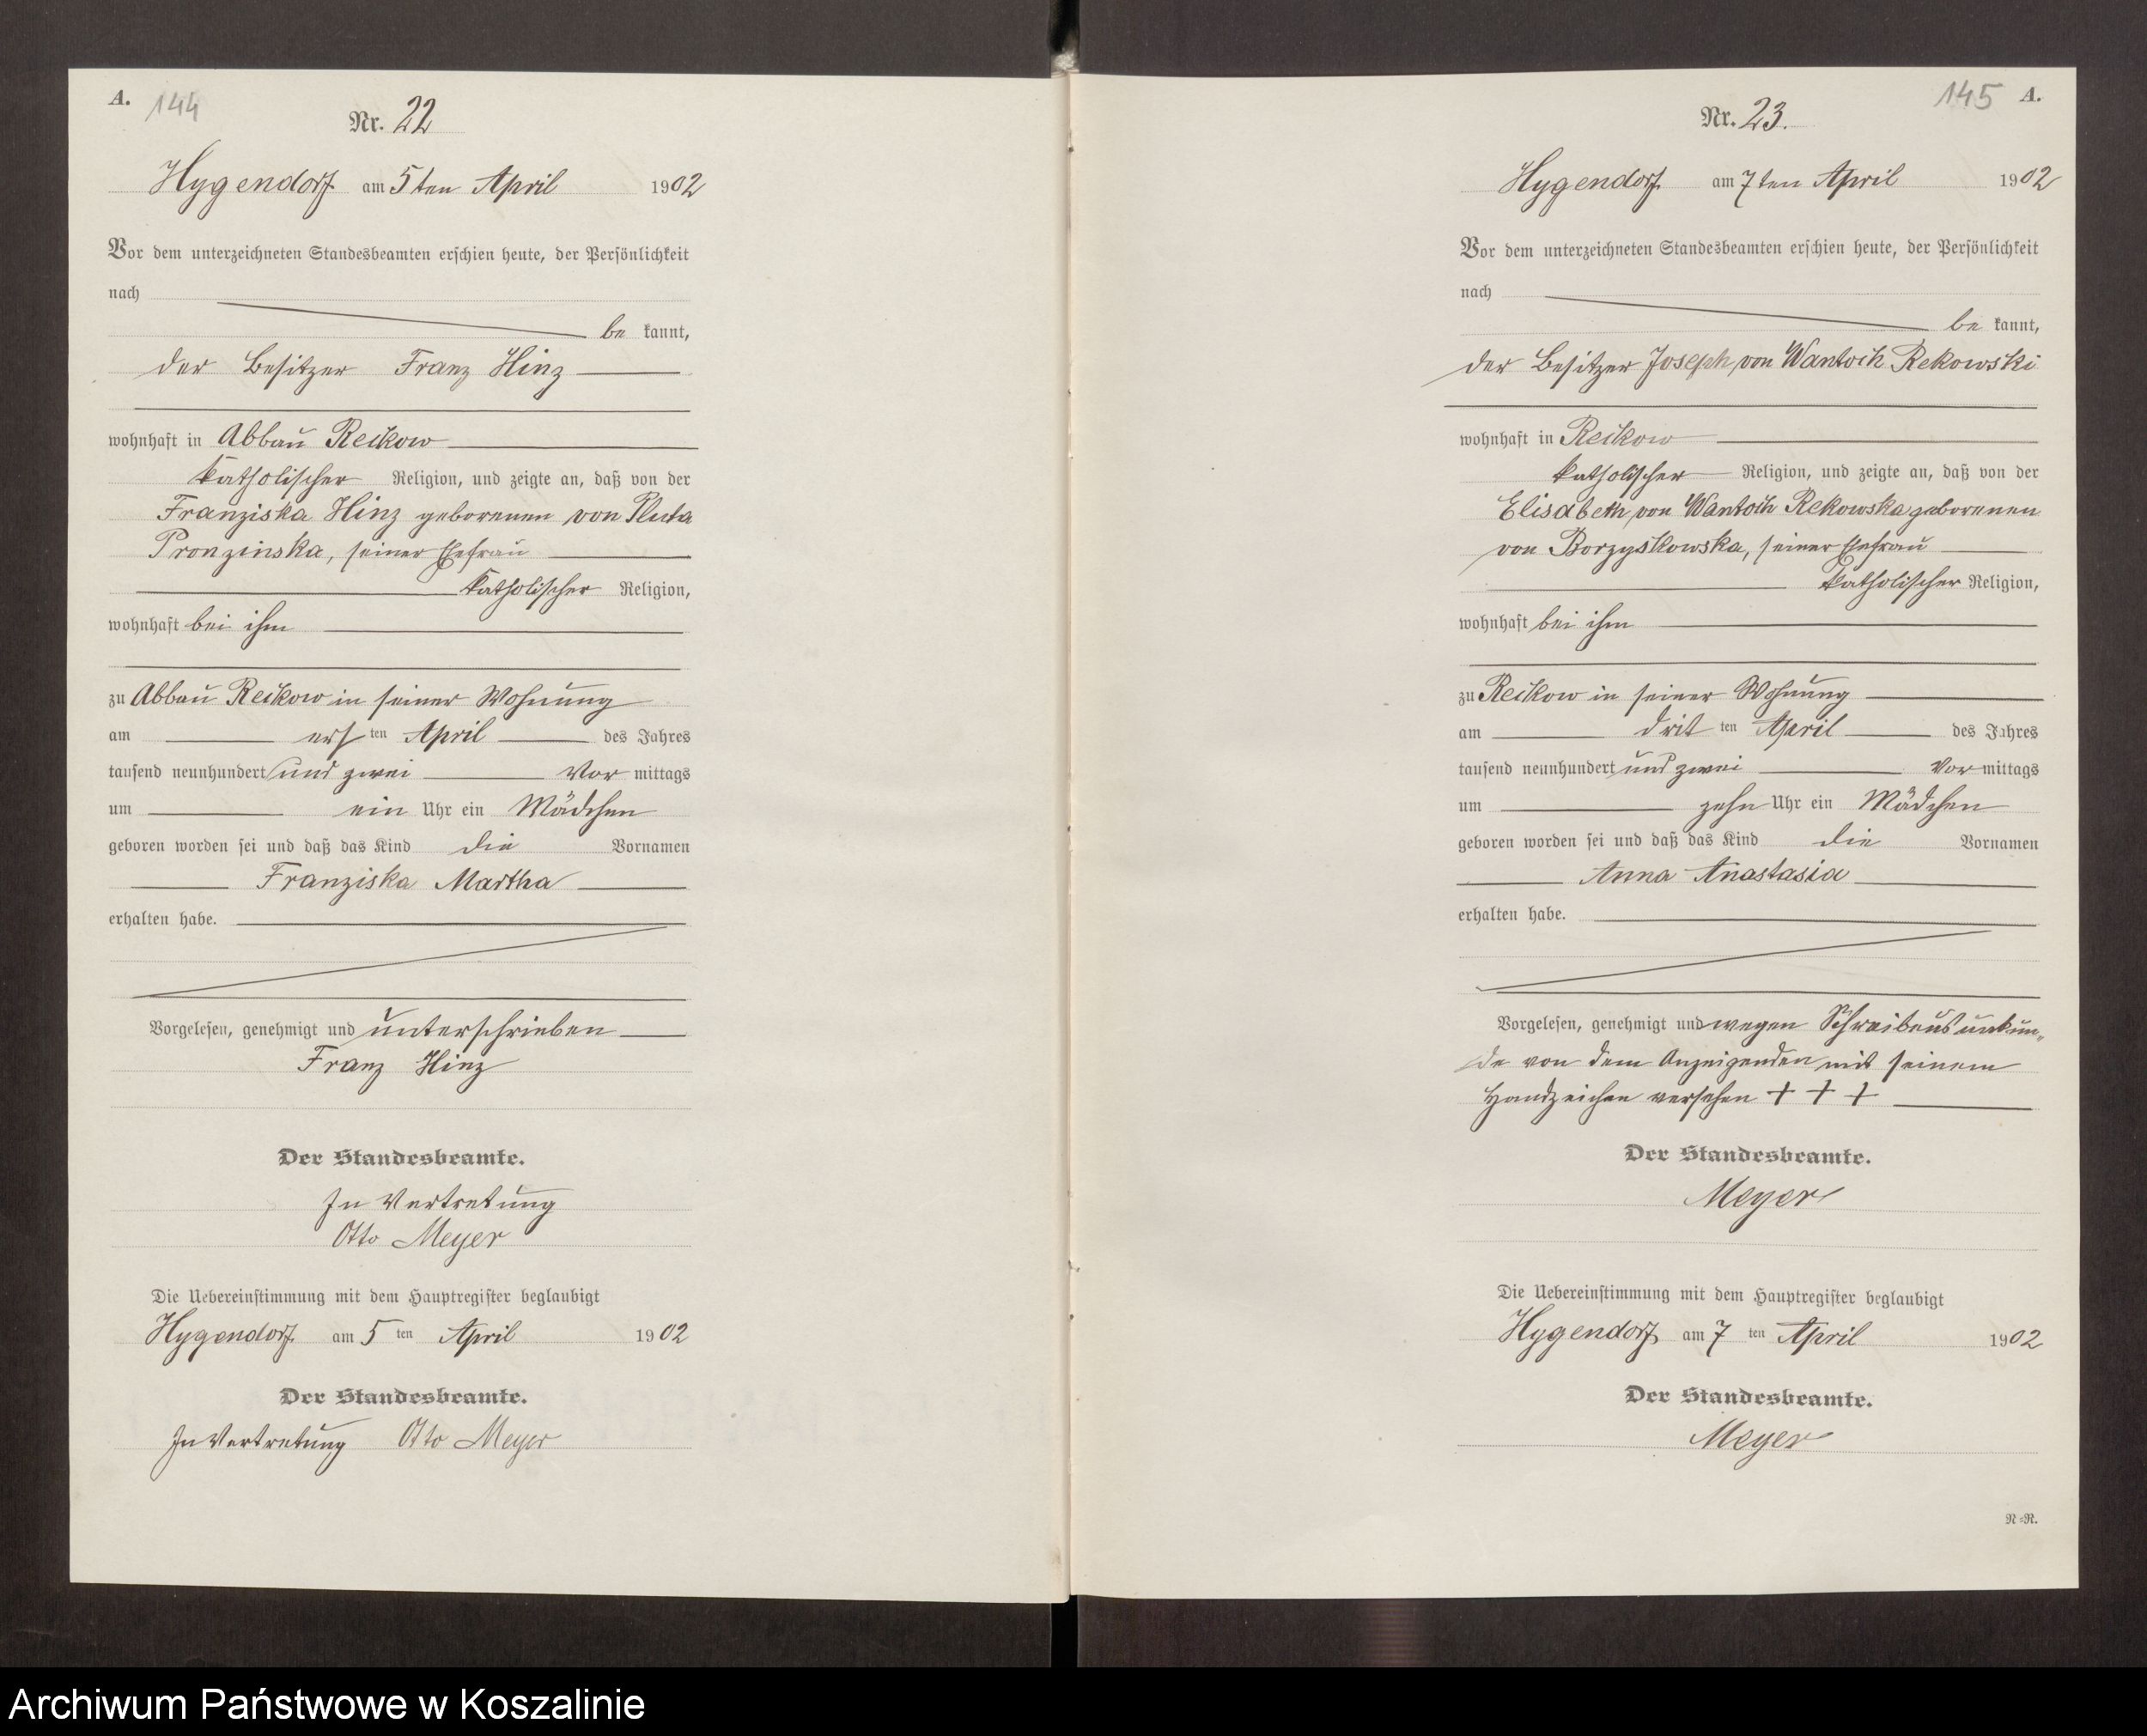 A. 144
Nr. 22
Hygendorf am 5ten April 1902
Vor dem unterzeichneten Standesbeamten erschien heute, der Persönlichkeit
nach
be kannt,
der Besitzer Franz Hinz
wohnhaft in Abbau Reckow
katholischer Religion, und zeigte an, daß von der
Franziska Hinz geborenen von Pluta
Pronzinska, seiner Ehefrau
katholischer Religion,
wohnhaft bei ihm
zu Abbau Reckow in seiner Wohnung
am ersten April des Jahres
tausend neunhundert und zwei Vor mittags
um ein Uhr ein Mädchen
geboren worden sei und daß das Kind die Vornamen
Franziska Martha
erhalten habe.
Vorgelesen, genehmigt und unterschrieben
Franz Hinz
Der Standesbeamte.
In Vertretung
Otto Meyer
Die Uebereinstimmung mit dem Hauptregister beglaubigt
Hygendorf am 5 ten April 1902
Der Standesbeamte.
In Vertretung Otto Meyer
145 A.
Nr. 23.
Hygendorf am 7ten April 1902
Vor dem unterzeichneten Standesbeamten erschien heute, der Persönlichkeit
nach
be kannt,
der Besitzer Joseph von Wantoch Rekowski
wohnhaft in Reckow
katholischer Religion, und zeigte an, daß von der
Elisabeth von Wantoch Rekowska geborenen
von Borzyskowska, seiner Ehefrau
katholischer Religion,
wohnhaft bei ihm
zu Reckow in seiner Wohnung
am dritten April des Jahres
tausend neunhundert und zwei Vor mittags
um zehn Uhr ein Mädchen
geboren worden sei und daß das Kind die Vornamen
Anna Anastasia
erhalten habe.
Vorgelesen, genehmigt und wegen Schreibensunkun-
de von dem Anzeigenden mit seinem
Handzeichen versehen + + +
Der Standesbeamte.
Meyer
Die Uebereinstimmung mit dem Hauptregister beglaubigt
Hygendorf am 7 ten April 1902
Der Standesbeamte.
Meyer
N=R.
Archiwum Państwowe w Koszalinie